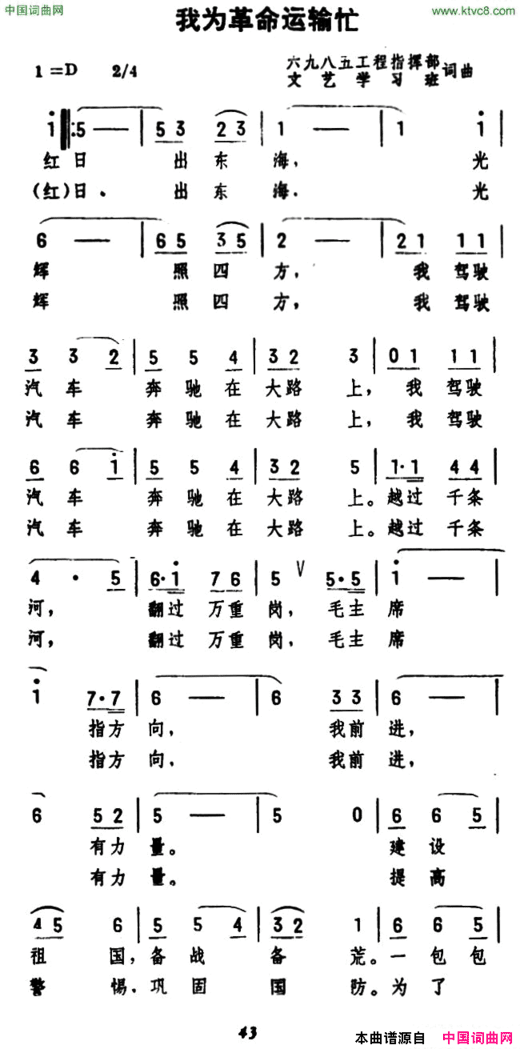 中国词曲网
我为革命运输忙
www.ktvc8.com
1=D 2/4
六九八五工程指挥部
文艺学习班 词曲
1 5 — 5 3 2 3 1 — 1 1
红日 出东海，光
(红)日． 出东海．光
6 — 6 5 3 5 2 — 2 1 1 1
辉 照四方，我驾驶
辉 照四方，我驾驶
3 3 2 5 5 4 3 2 3 0 1 1 1
汽车 奔驰在大路上，我驾驶
汽车 奔驰在大路上，我驾驶
6 6 1 5 5 4 3 2 5 1·1 4 4
汽车 奔驰在大路上。越过千条
汽车 奔驰在大路上。越过千条
4 · 5 6·1 7 6 5 V 5·5 1 —
河，翻过万重岗，毛主席
河，翻过万重岗，毛主席
1 7·7 6 — 6 3 3 6 —
指方向，我前进，
指方向，我前进，
6 5 2 5 — 5 0 6 6 5
有力量。建设
有力量。提高
4 5 6 5 5 4 3 2 1 6 6 5
祖国，备战备荒。一包包
警惕．巩固国防．为了
43
本曲谱源自 中国词曲网